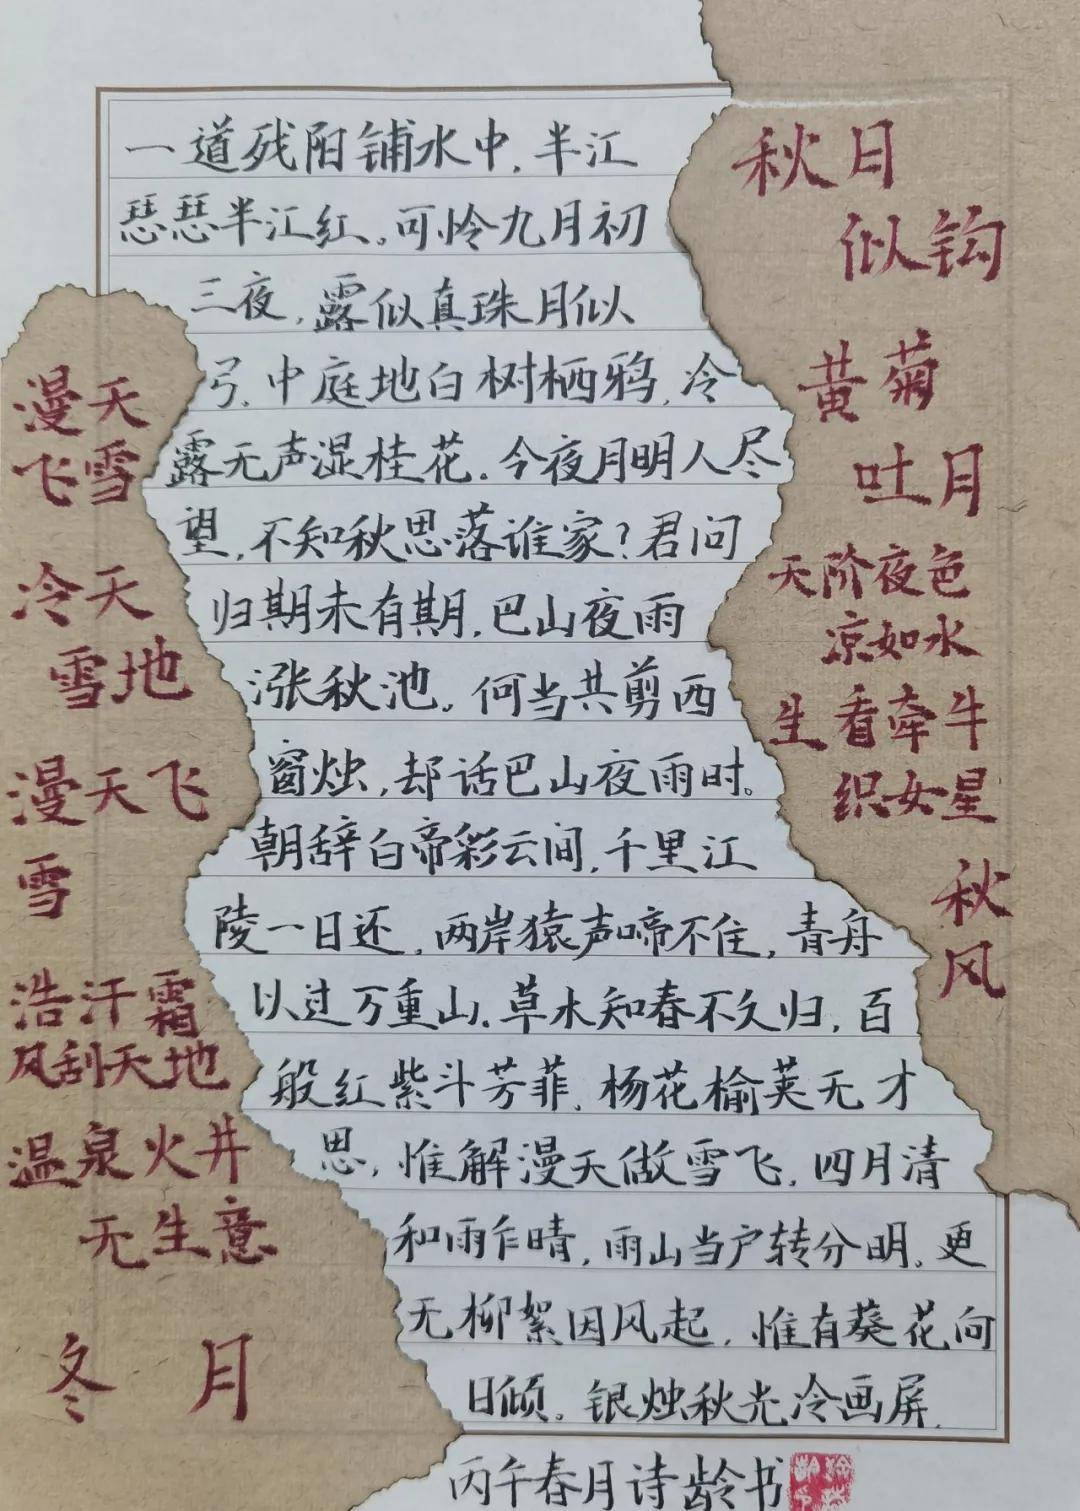 一道残阳铺水中，半江
瑟瑟半江红。可怜九月初
三夜，露似真珠月似
弓。中庭地白树栖鸦，冷
露无声湿桂花。今夜月明人尽
望，不知秋思落谁家？君问
归期未有期，巴山夜雨
涨秋池。何当共剪西
窗烛，却话巴山夜雨时。
朝辞白帝彩云间，千里江
陵一日还，两岸猿声啼不住，青舟
以过万重山。草木知春不久归，百
般红紫斗芳菲。杨花榆荚无才
思，惟解漫天做雪飞。四月清
和雨乍晴，雨山当户转分明。更
无柳絮因风起，惟有葵花向
日倾。银烛秋光冷画屏，
丙午春月诗龄书
秋日
似钩
黄菊
吐月
天阶夜色
凉如水
坐看牵牛
织女星
秋
风
漫天
飞雪
冷天
雪地
漫天飞
雪
浩汗霜
风刮天地
温泉火井
无生意
冬月